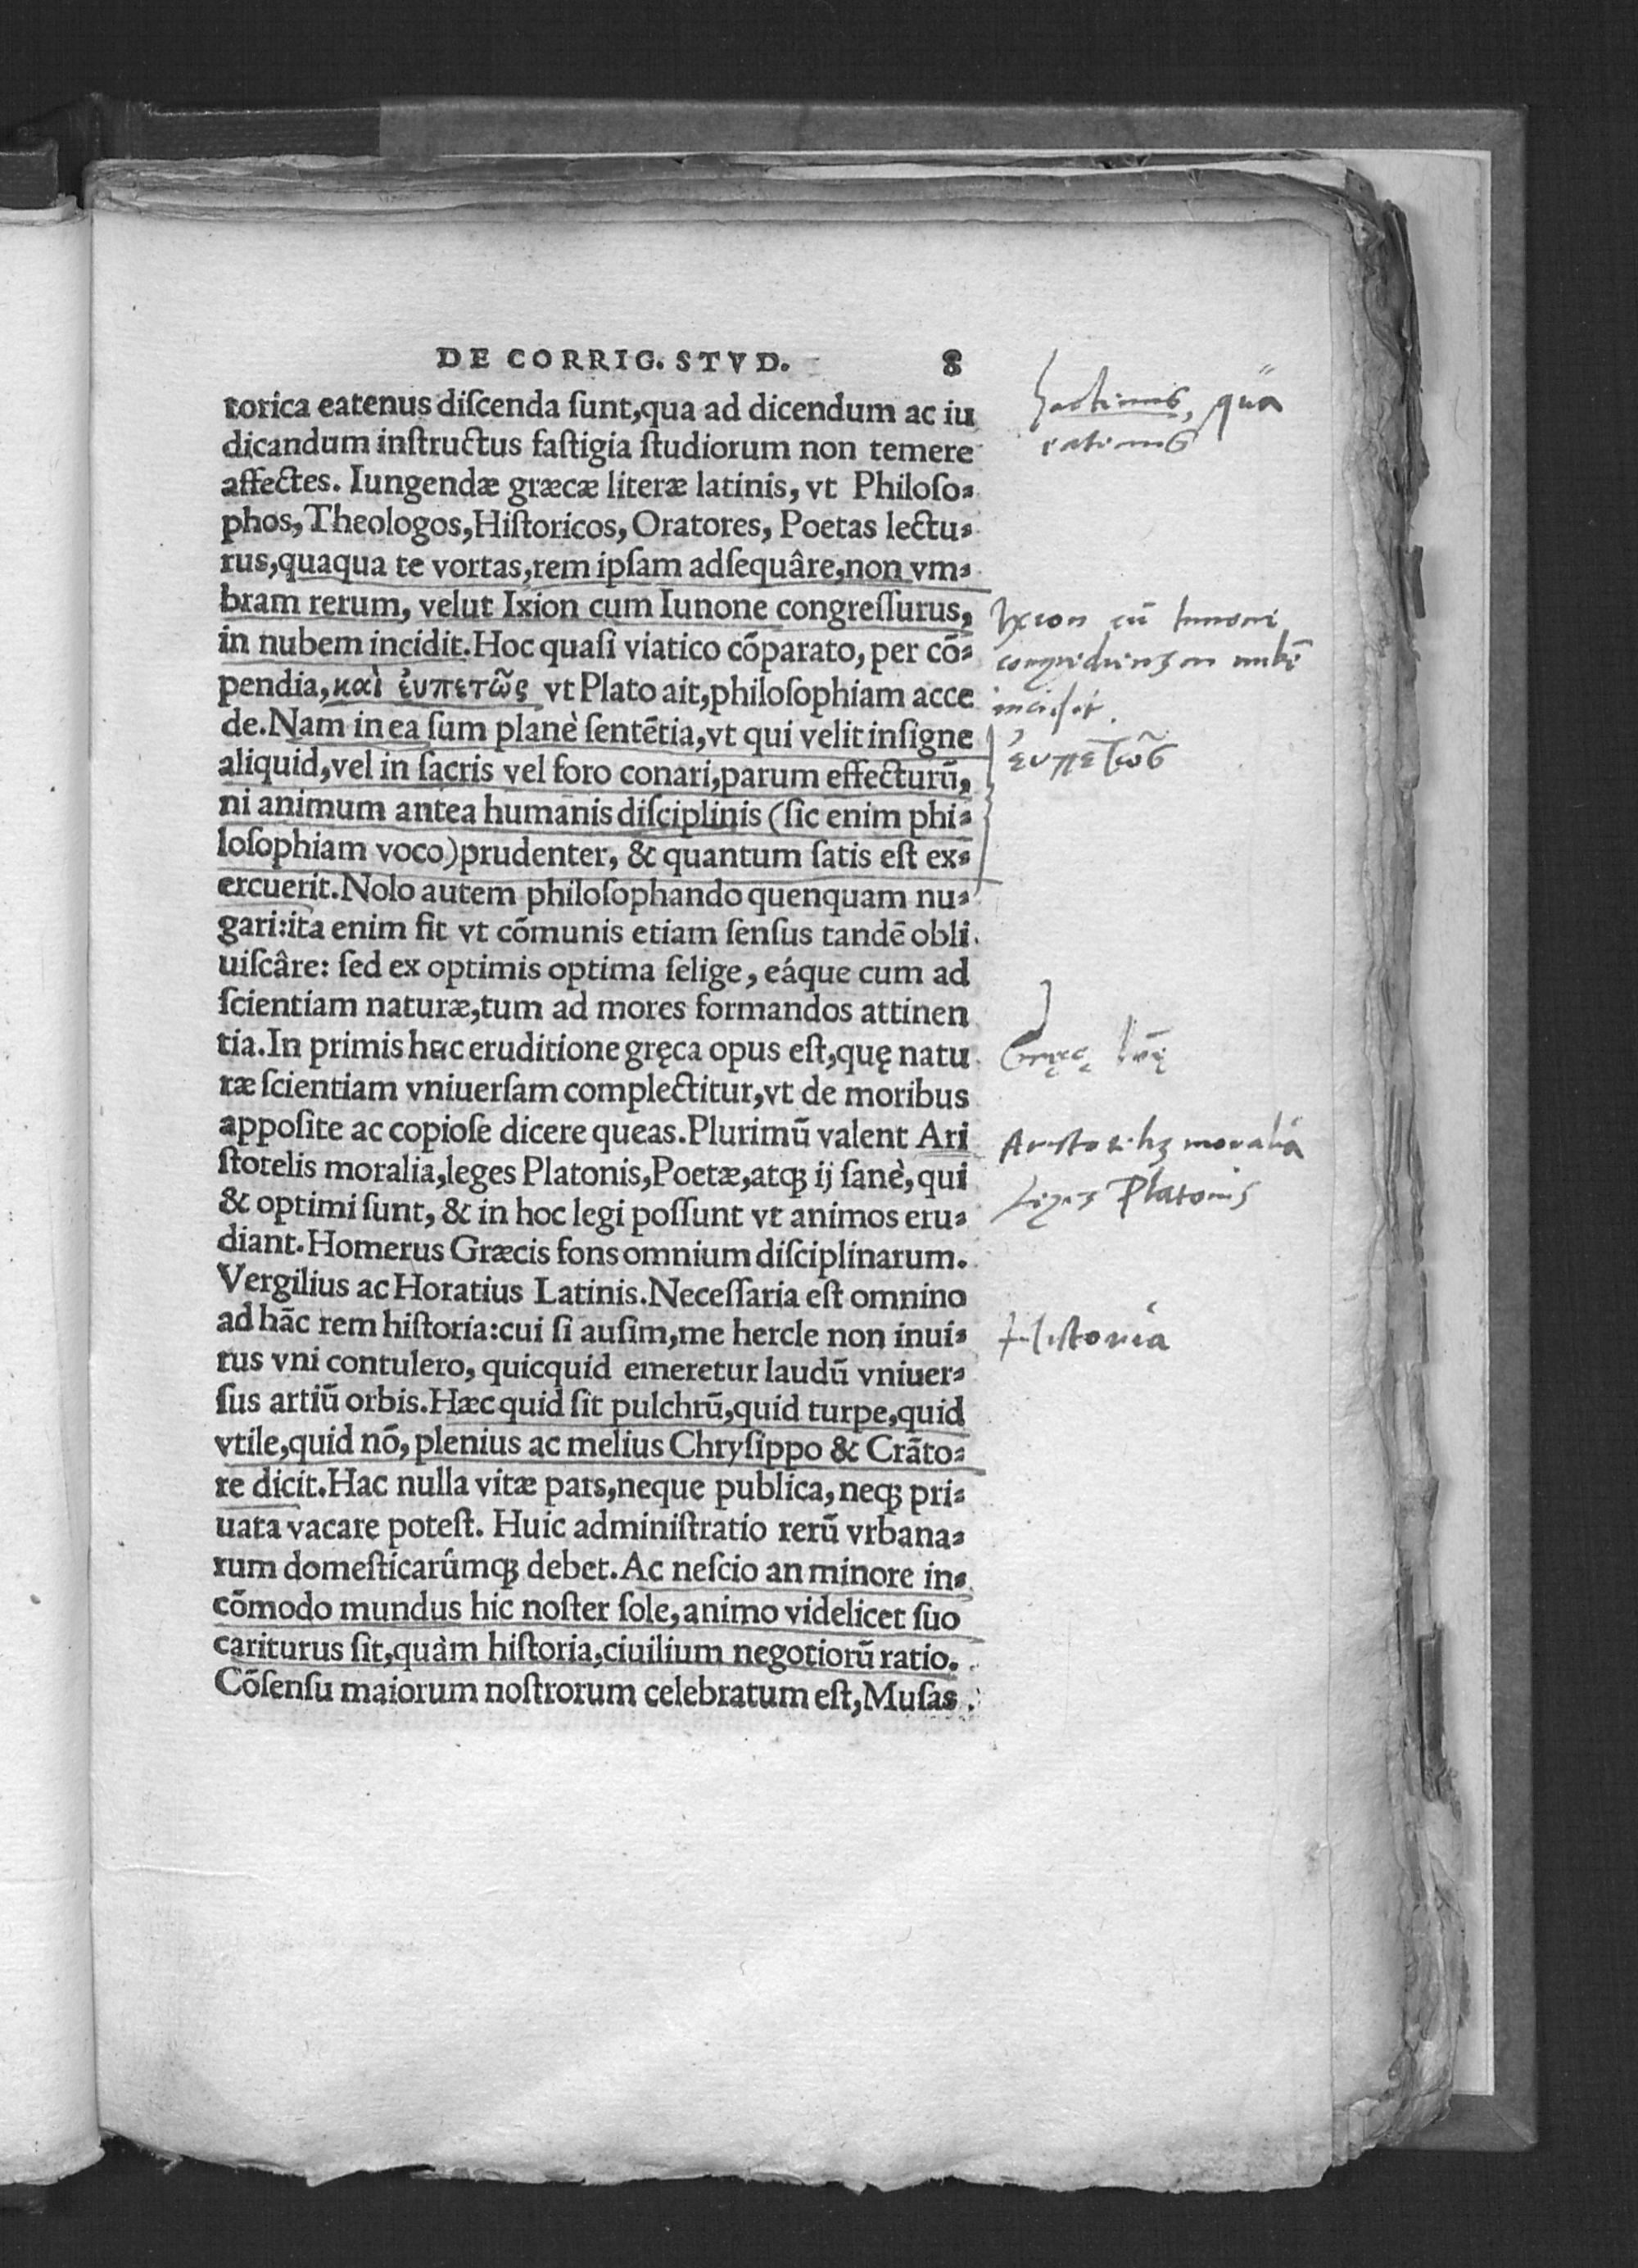 DE CORRIG. STVD. 8
torica eatenus diſcenda ſunt,qua ad dicendum ac iu
dicandum inſtructus faſtigia ſtudiorum non temere
affectes. Iungendæ græcæ literæ latinis, vt Philoſo⸗
phos, Theologos, Hiſtoricos, Oratores, Poetas lectu⸗
rus,quaqua te vortas,rem ipſam adſequâre,non vm⸗
bram rerum, velut Ixion cum Iunone congreſſurus,
in nubem incidit.Hoc quaſi viatico cōparato, per cō⸗
pendia,καὶ ἐυπετῶς vt Plato ait,philoſophiam acce
de.Nam in ea ſum planè ſentētia,vt qui velit inſigne
aliquid,vel in ſacris vel foro conari,parum effecturū,
ni animum antea humanis diſciplinis (ſic enim phi⸗
loſophiam voco)prudenter, & quantum ſatis eſt ex⸗
ercuerit.Nolo autem philoſophando quenquam nu⸗
gari:ita enim fit vt cōmunis etiam ſenſus tandē obli
uiſcâre: ſed ex optimis optima ſelige, eáque cum ad
ſcientiam naturæ,tum ad mores formandos attinen
tia.In primis hac eruditione gręca opus eſt,quę natu
ræ ſcientiam vniuerſam complectitur,vt de moribus
appoſite ac copioſe dicere queas.Plurimū valent Ari
ſtotelis moralia,leges Platonis,Poetæ,atqꝫ ij ſanè, qui
& optimi ſunt, & in hoc legi poſſunt vt animos eru⸗
diant.Homerus Græcis fons omnium diſciplinarum.
Vergilius ac Horatius Latinis.Neceſſaria eſt omnino
ad hāc rem hiſtoria:cui ſi auſim,me hercle non inui⸗
tus vni contulero, quicquid emeretur laudū vniuer⸗
ſus artiū orbis.Hæc quid ſit pulchrū,quid turpe,quid
vtile,quid nō, plenius ac melius Chryſippo & Crāto⸗
re dicit.Hac nulla vitæ pars,neque publica, neqꝫ pri⸗
uata vacare poteſt. Huic adminiſtratio rerū vrbana⸗
rum domeſticarûmqꝫ debet.Ac neſcio an minore in⸗
cōmodo mundus hic noſter ſole,animo videlicet ſuo
cariturus ſit,quàm hiſtoria,ciuilium negotiorū ratio.
Cōſenſu maiorum noſtrorum celebratum eſt,Muſas
hactenus, qua
eatenus
Ixion cū Iunone
nubē
incidit.
ἐυπετῶς
Aristotelis moralia
Leges Platonis
Historia